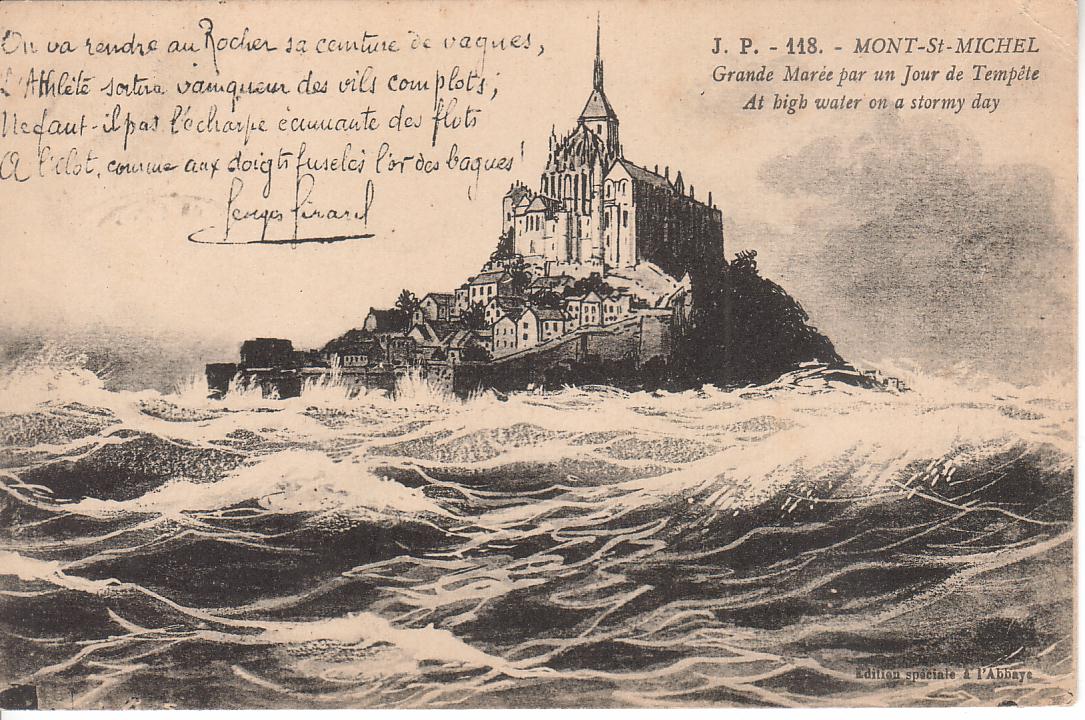 On va rendre au Rocher sa ceinture de vagues,
L'Athlète sortira vainqueur des vils complots;
Ne faut-il pas l'écharpe écumante des flots
A l'ilot, comme aux doigts fuselés l'or des bagues!
Georges Girard
J. P. - 118. - MONT-St-MICHEL
Grande Marée par un Jour de Tempête
At high water on a stormy day
Edition spéciale à l'Abbaye